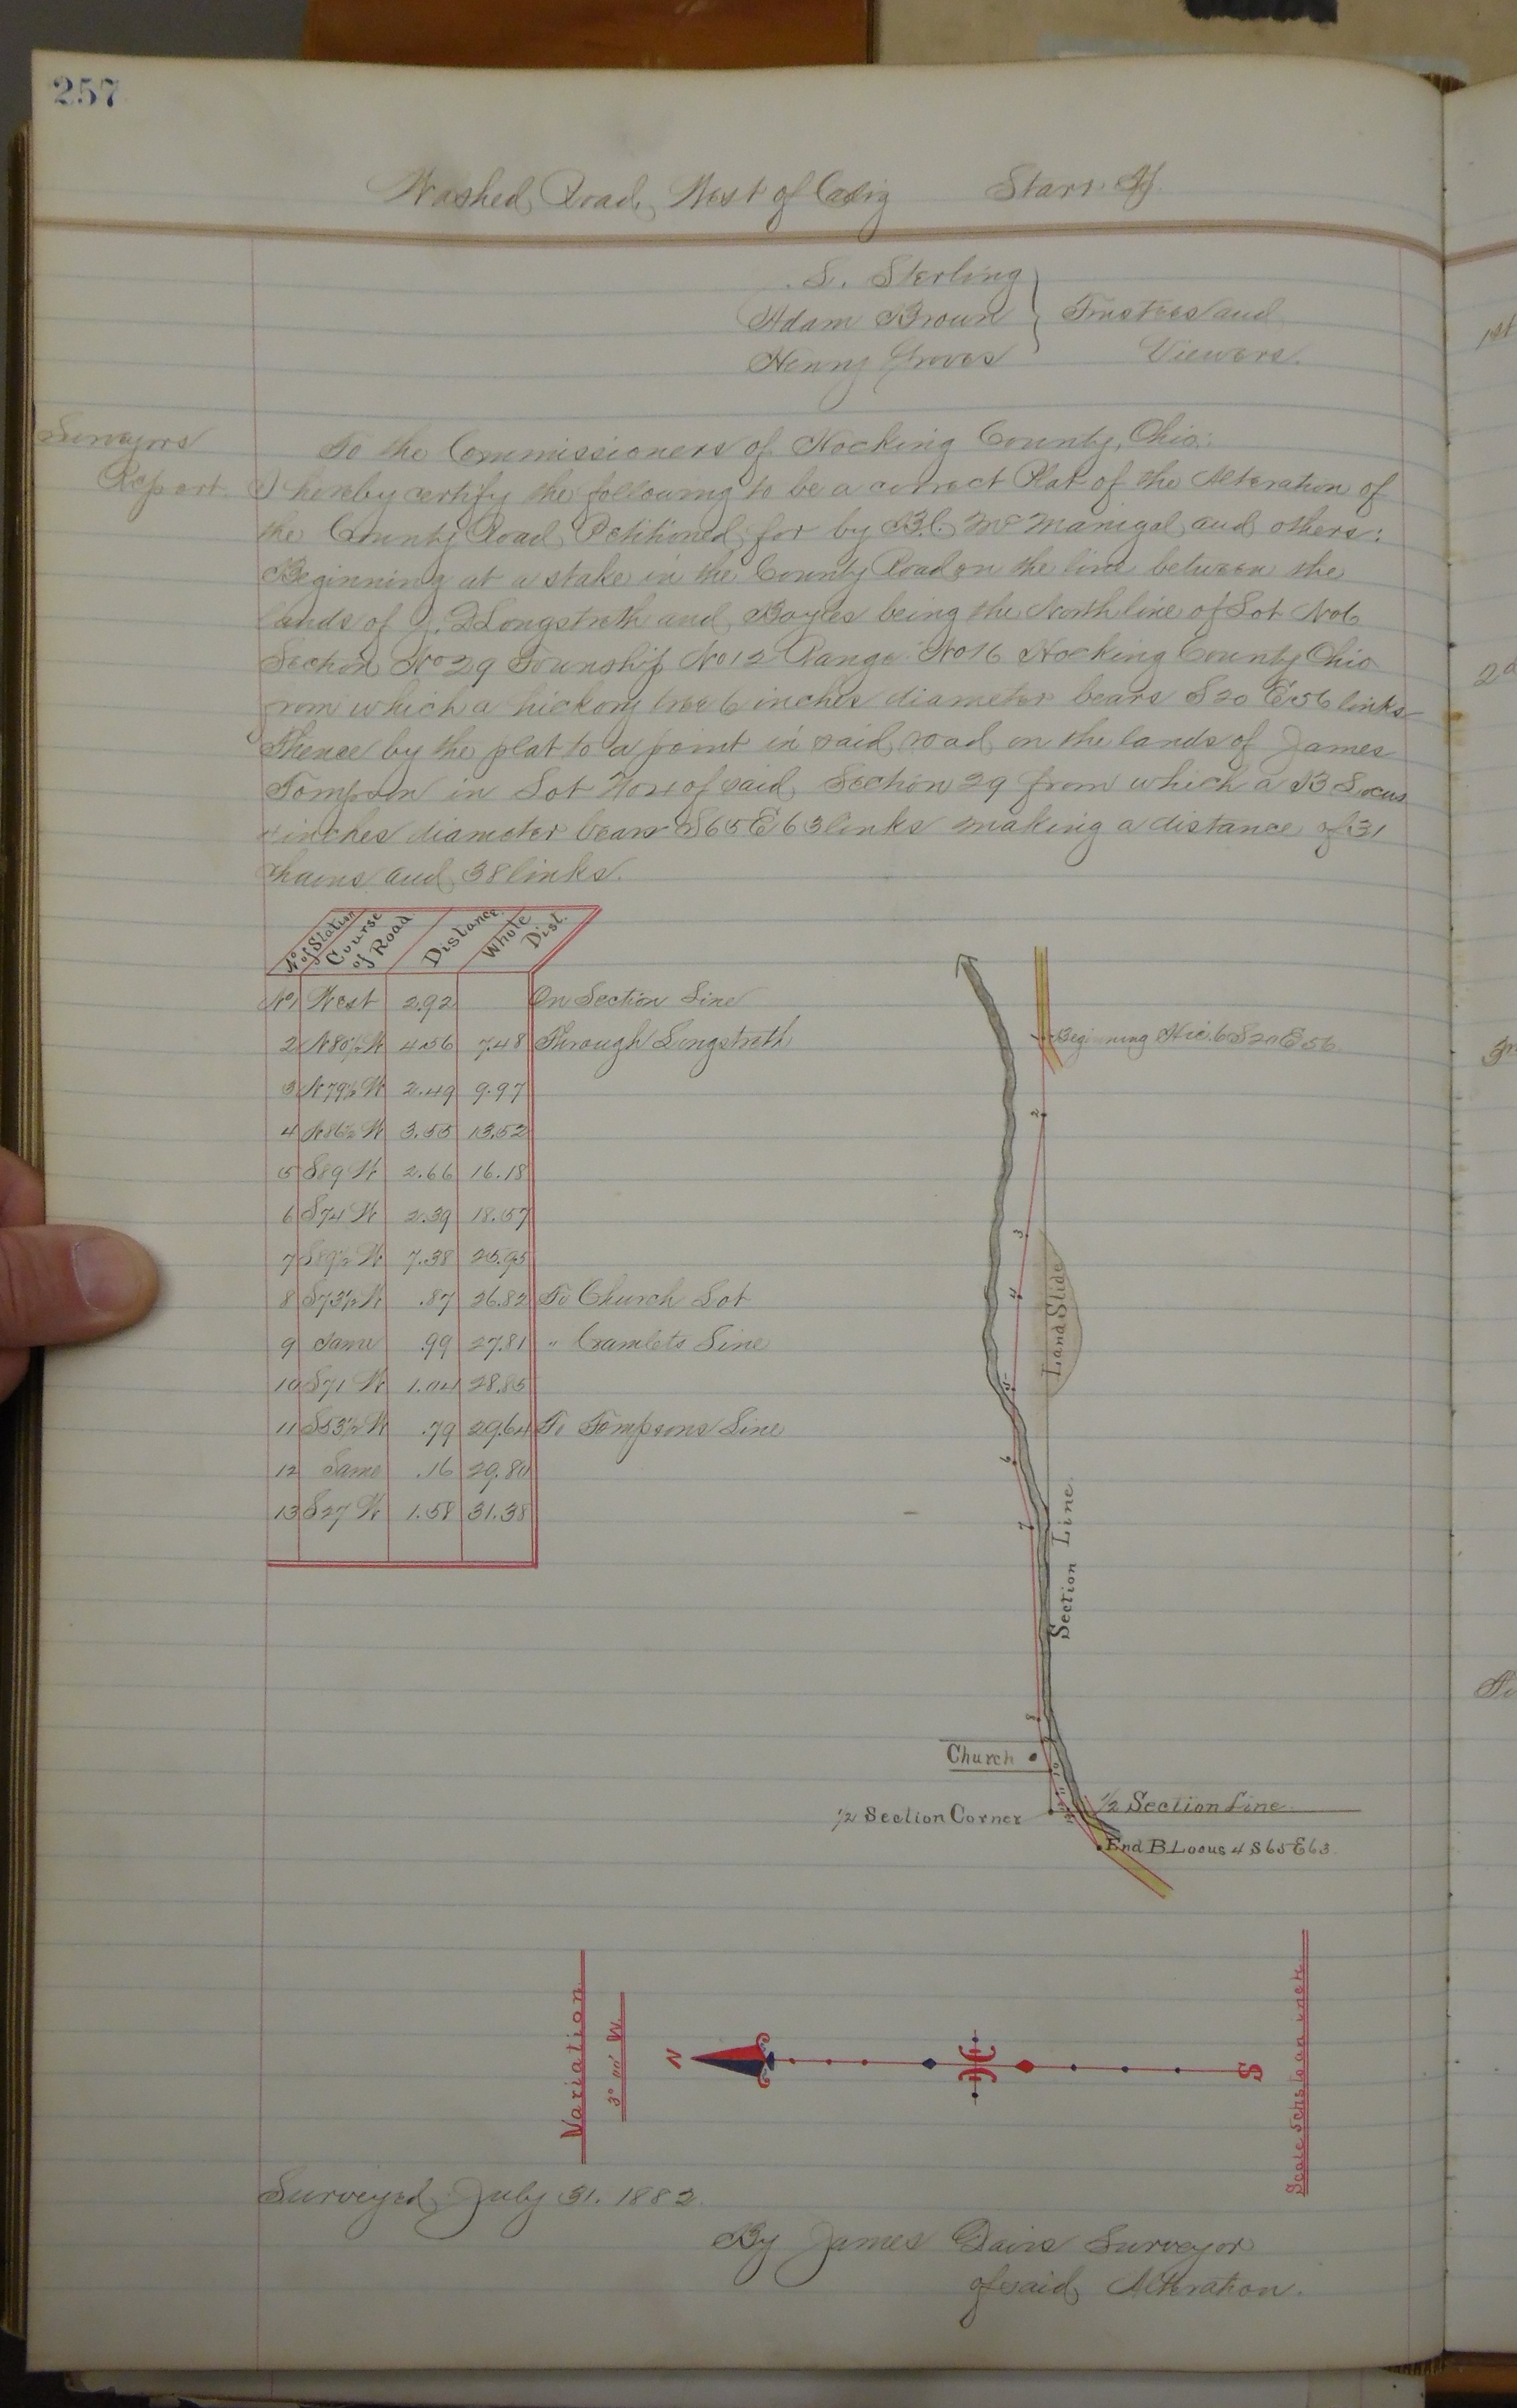 257
Washed Road, West of Starr Tp.
S. Sterling
Adam Brown Trustees and
Henry Groves Viewers.
Surveyors
Report.
To the Commissioners of Hocking County, Ohio:
I hereby certify the following to be a correct Plat of the Alteration of
the County Road Petitioned for by B.C. McManigal and others:
Beginning at a stake in the County Road on the line between the
lands of Longstreth and Boyles being the North line of Lot No 6
Section No 29 Township No 12 Range No 16 Hocking County Ohio
from which a hickory tree 6 inches diameter bears S 20 E 56 links
Thence by the plat to a point in said road on the lands of James
Tompson in Lot No 4 of said Section 29 from which a B Locus
4 inches diameter bears S65 E 63 links making a distance of 31
chains and 38 links.
No of Station Course of Road Distance Whole Dist.
No 1 West 2.92 On Section Line
2 N80½W 4.56 7.48 Through Longstreth
3 N79½W 2.49 9.97
4 N86½W 3.55 13.52
5 S89 W 2.66 16.18
6 S74 W 2.39 18.57
7 S89½W 7.38 25.95
8 S73½W .87 26.82 To Church Lot
9 Same .99 27.81 " Cramlets Line
10 S71 W 1.04 28.85
11 S53½W .79 29.64 To Tompsons Line
12 Same .16 29.80
13 S27 W 1.58 31.38
1 Beginning Hic. 6 S20 E 56
2
3
4
Land Slide
5
6
7
Section Line
8
Church
9
10
11
12
13
½ Section Corner
½ Section Line
End B Locus 4 S65 E 63
Variation
3° 00' W.
N
S
Scale 5 chs to an inch
Surveyed July 31. 1882.
By James Davis Surveyor
of said Alteration.